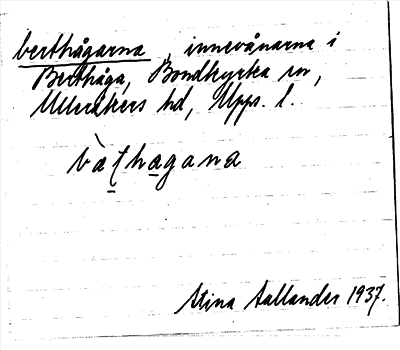 berthågarna, innevånarna i
Berthåga, Bondkyrka sn,
Ulleråkers hd, Upps. l.
bàṯhagana
Stina Aallander 1937.